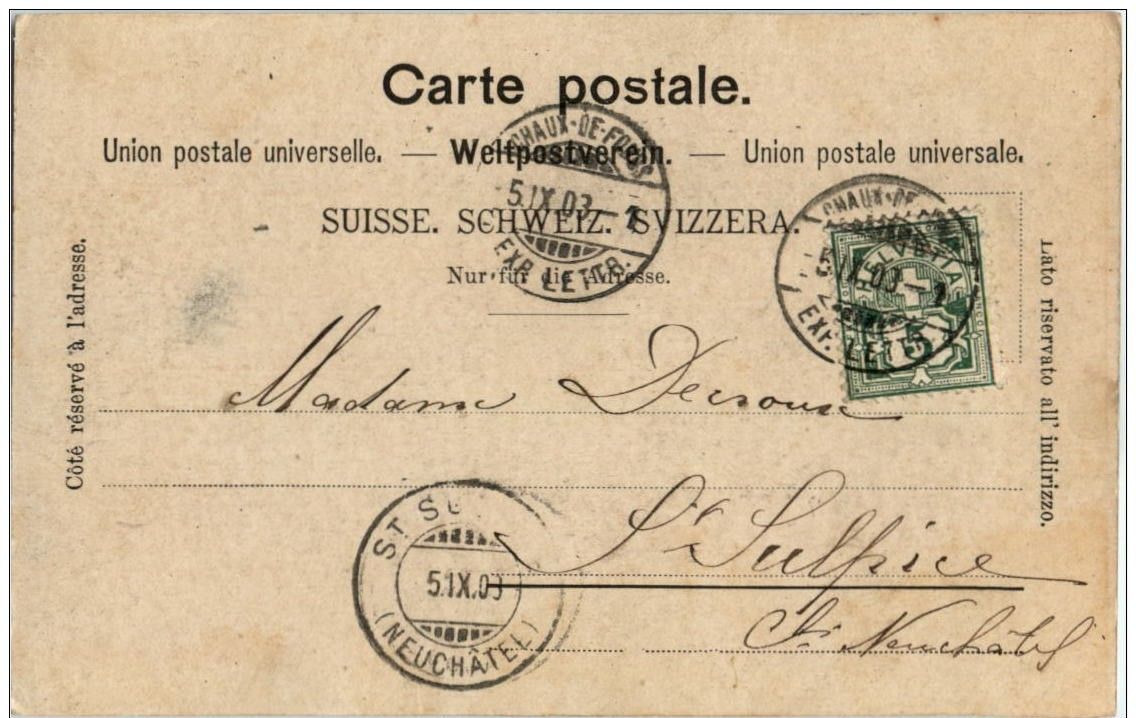 Carte postale.
Union postale universelle. — Weltpostverein. — Union postale universale.
SUISSE. SCHWEIZ. SVIZZERA.
Nur für die Adresse.
Côté réservé à l'adresse.
Lato riservato all' indirizzo.
CHAUX-DE-FONDS
5.IX.03-1
EXP. LETTR.
CHAUX-DE
5.IX.03-1
EXP. LETTR.
HELVETIA
5
Madame
St Sulpice
Ct. Neuchâtel
ST SU
5.IX.03
(NEUCHÂTEL)